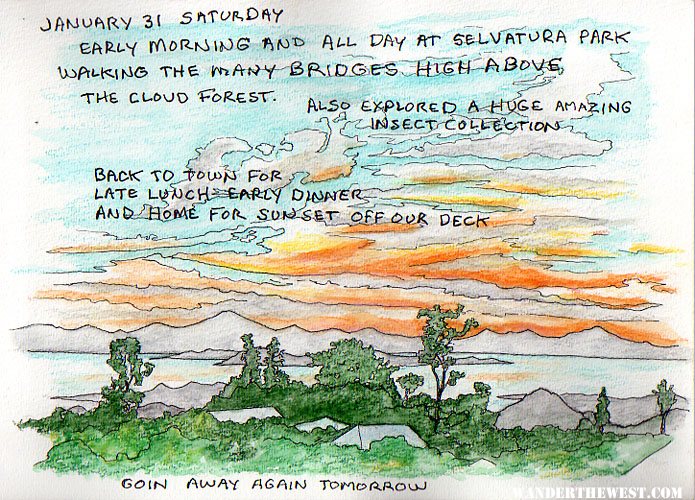 JANUARY 31 SATURDAY
EARLY MORNING AND ALL DAY AT SELVATURA PARK
WALKING THE MANY BRIDGES HIGH ABOVE
THE CLOUD FOREST.
ALSO EXPLORED A HUGE AMAZING
INSECT COLLECTION
BACK TO TOWN FOR
LATE LUNCH-EARLY DINNER
AND HOME FOR SUNSET OFF OUR DECK
GOIN AWAY AGAIN TOMORROW
WANDERTHEWEST.COM